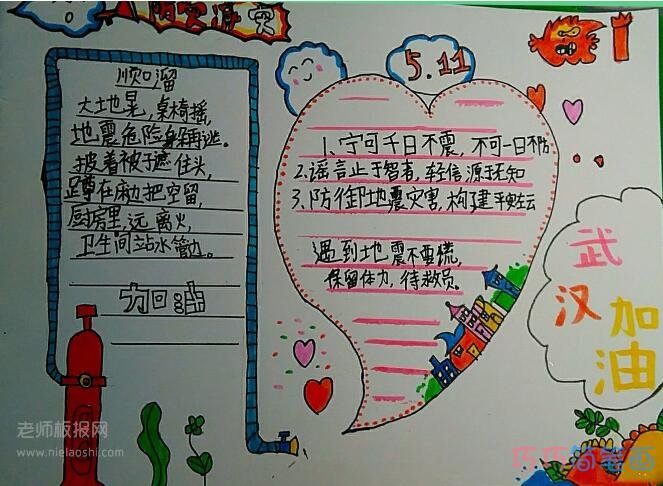 防灾减灾
5.11
顺口溜
大地晃,桌椅摇,
地震危险身辆逃。
披着被子遮住头,
蹲在床边把空留,
厨房里,远离火,
卫生间站水管边。
加油
1、宁可千日不震,不可一日不防
2.谣言止于智者,轻信源于无知
3、防御地震灾害,构建平安生云
遇到地震不要慌,
保留体力,待救员。
武
汉 加
油
老师板报网
www.nielaoshi.com
巧巧简笔画